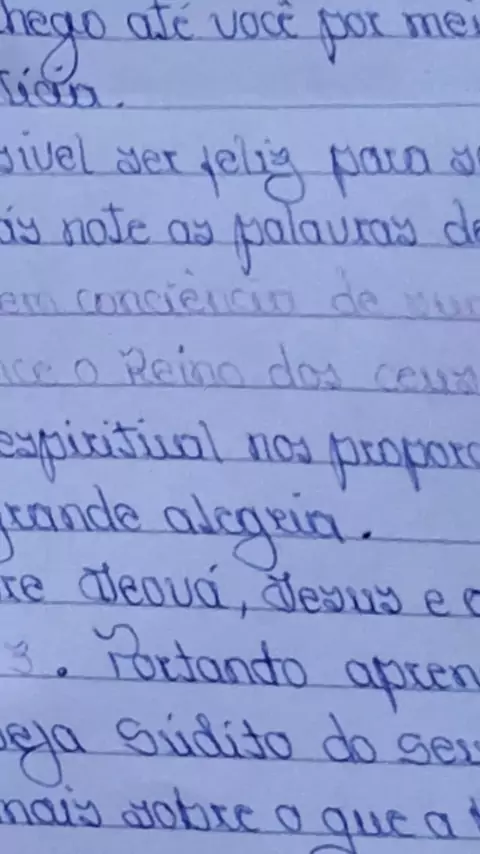 hego até você por mei
ricia.
sivel ser feliz para s
ás note as palavras de
em conciência de su
ce o Reino dos ceus
espiritual nos proporc
grande alegria.
re Jeová, Jesus e o
s. Portando apren
eja súdito do seu
mais sobre o que a